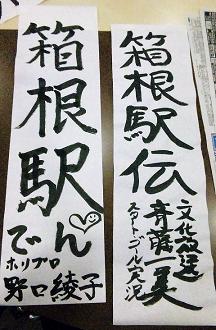 箱根駅伝
文化放送
斉藤一美
スタート・ゴール実況
箱根駅
でん
ホリプロ
野口綾子